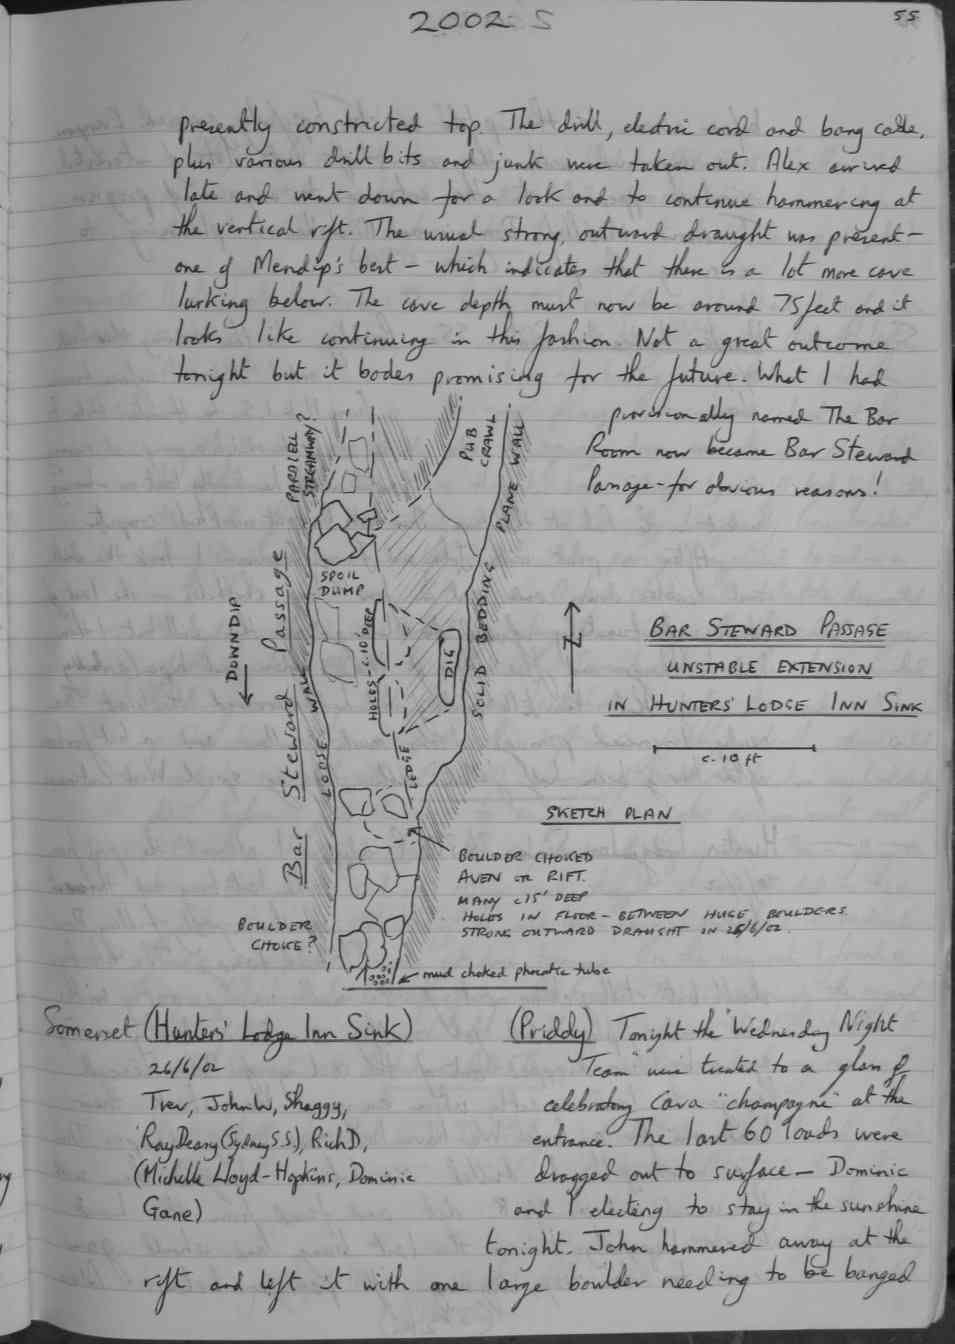 2002 S
55
presently constricted top. The drill, electric cord and bang cable,
plus various drill bits and junk were taken out. Alex arrived
late and went down for a look and to continue hammering at
the vertical rift. The usual strong, outward draught was present -
one of Mendip's best - which indicates that there is a lot more cave
lurking below. The cave depth must now be around 75 feet and it
looks like continuing in this fashion. Not a great outcome
tonight but it bodes promising for the future. What I had
provisionally named The Bar
Room now became Bar Steward
Passage - for obvious reasons!
PARALELL
STREAMWAY?
PUB
CRAWL
PLANE WALL
SPOIL
DUMP
DOWNDIP
Bar Steward Passage
LOOSE WALL
HOLES - C.10' DEEP
DIG
SOLID BEDDING
LEDGE
N
BAR STEWARD PASSAGE
UNSTABLE EXTENSION
IN HUNTERS' LODGE INN SINK
c. 10 ft
SKETCH PLAN
BOULDER CHOKED
AVEN OR RIFT.
MANY c15' DEEP
HOLES IN FLOOR - BETWEEN HUGE BOULDERS.
STRONG OUTWARD DRAUGHT IN 26/6/02.
BOULDER
CHOKE?
mud choked phreatic tube
Somerset (Hunters' Lodge Inn Sink) (Priddy) Tonight the "Wednesday Night
26/6/02
Team" were treated to a glass of
Trev, John W, Shaggy,
celebratory Cava "champagne" at the
Ray Deasy (Sydney S.S.), Rich D,
entrance. The last 60 loads were
(Michelle Lloyd-Hopkins, Dominic
dragged out to surface - Dominic
Gane)
and I electing to stay in the sunshine
tonight. John hammered away at the
rift and left it with one large boulder needing to be banged